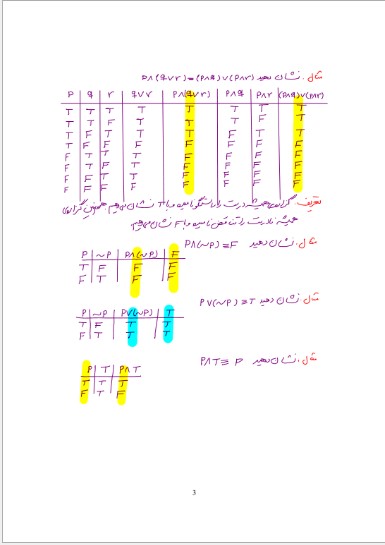 مثال. نشان دهید P∧(q∨r)≡(P∧q)∨(P∧r)
P q r q∨r P∧(q∨r) P∧q P∧r (P∧q)∨(P∧r)
T T T T T T T T
T T F T T T F T
T F T T T F T T
T F F F F F F F
F T T T F F F F
F T F T F F F F
F F T T F F F F
F F F F F F F F
تعریف. گزاره‌ی همیشه درست را راستگو نامیده و با T نشان می‌دهیم. همچنین گزاره‌ی
همیشه نادرست را تناقض نامیده و با F نشان می‌دهیم
مثال. نشان دهید P∧(~P)≡F
P ~P P∧(~P) F
T F F F
F T F F
مثال. نشان دهید P∨(~P)≡T
P ~P P∨(~P) T
T F T T
F T T T
مثال. نشان دهید P∧T≡P
P T P∧T
T T T
F T F
3